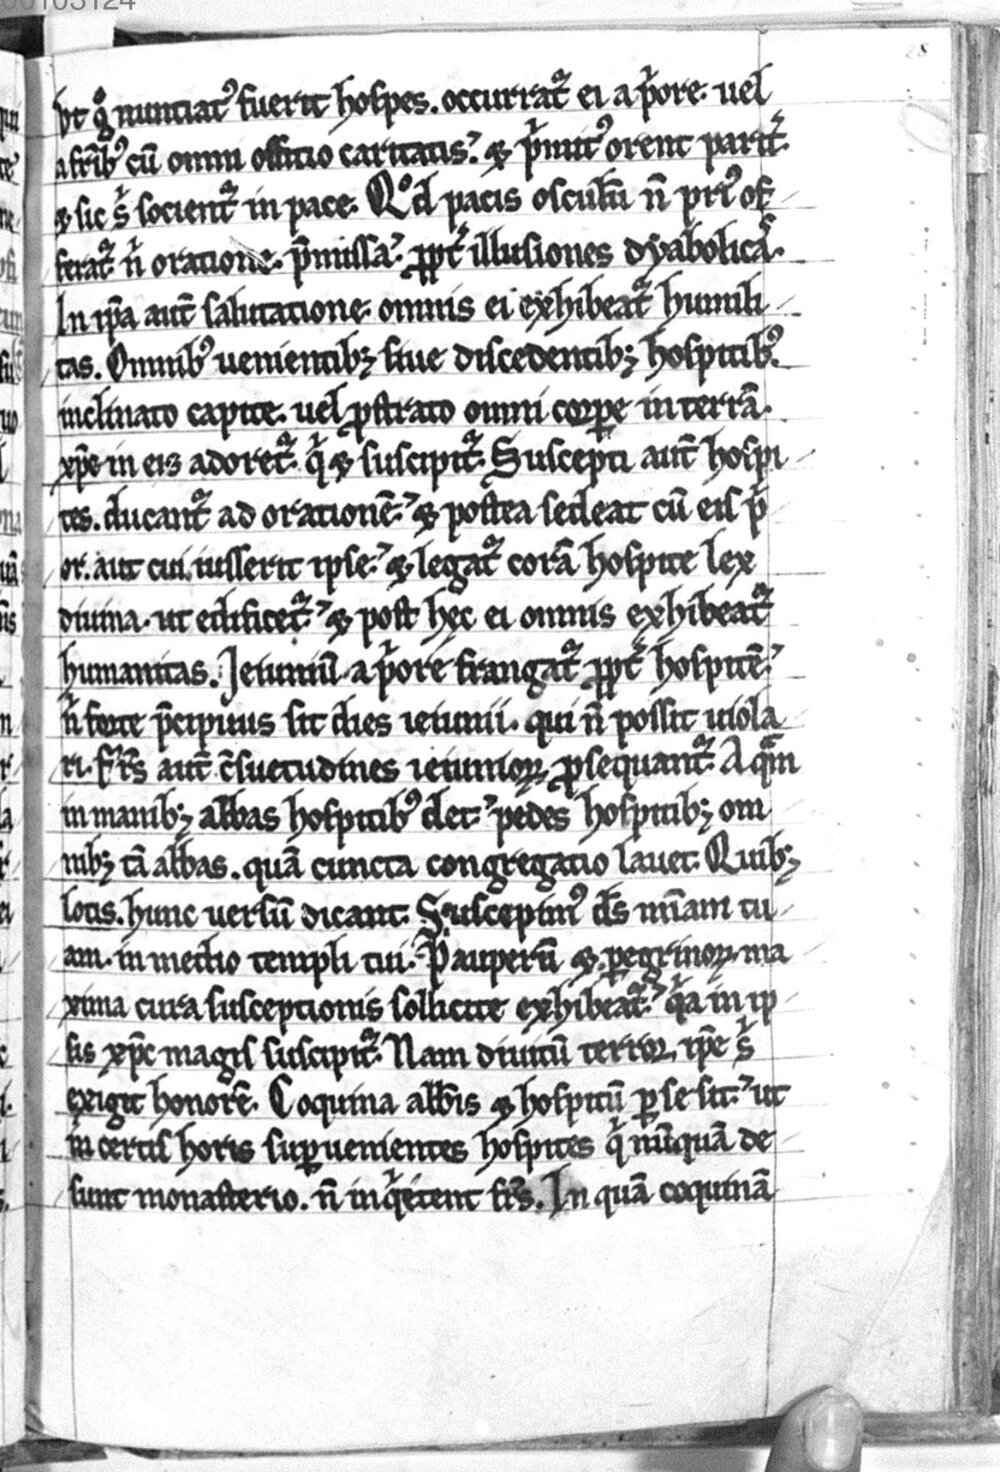 00105124
28
Vt gͦ nuntiatꝰ fuerit hospes. occurrat᷑ ei a p̓ore. uel
a fr̄ibꝰ cū omni offitio caritatis. ⁊ p̓mitꝰ orent parit᷑.
⁊ sic s̓ socient᷑ in pace. Qͦd pacis osculū n̄ priꝰ of
ferat᷑ n̓ oratione p̄missa. ꝓpt᷑ illusiones dyabolicaꝭ.
In ip̄a aut̄ salutatione omnis ei exhibeat᷑ humili
tas. Omnibꝰ uenientibꝫ siue discedentibꝫ hospitibꝰ.
inclinato capite. uel ꝓstrato omni corꝑe in terrā.
xp̄c in eis adoret᷑. q̓ ⁊ suscipit᷑. Suscepti aut̄ hospi
tes. ducant᷑ ad orationē. ⁊ postea sedeat cū eis p̓
or. aut cui iusserit ipse. ⁊ legat᷑ corā hospite lex
diuina. ut edificet᷑. ⁊ post hec ei omnis exhibeat᷑
humanitas. Jeiuniū a p̓ore frangat᷑ ꝓpt᷑ hospitē.
n̓ forte p̄cipuus sit dies ieiunii. qui n̄ possit uiola
ri. fr̄s aut̄ c̄suetudines ieiunioꝝ ꝓsequant᷑. Aquā
in manibꝫ abbas hospitibꝰ det. pedes hospitibꝫ om
nibꝫ tā abbas. quā cuncta congregatio lauet. Quibꝫ
lotis. hunc uersū dicant. Suscepimꝰ ds̄ mīam tu
am. in medio templi tui. Pauperū ⁊ ꝑegrinoꝝ. ma
xima cura susceptionis sollicite exhibeat᷑. q̓a in ip
sis xp̄c magis suscipit᷑. Nam diuitū terror, ip̄e s̓
exigit honorē. Coquina abb̄is ⁊ hospitū ꝑ se sit. ut
in certis horis suꝑuenientes hospites q̓ nūquā de
sunt monasterio. n̄ inq̓etent fr̄s. In quā coquinā